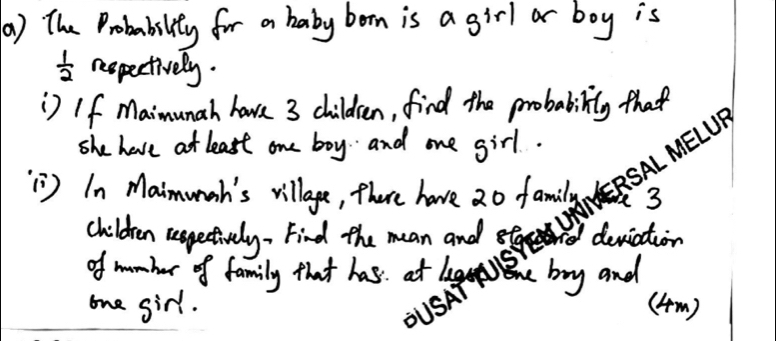 a) The Probability for a baby born is a girl or boy is
1/2 respectively.
i) If Maimunah have 3 children, find the probability that
she have at least one boy and one girl.
ii) In Maimunah's village, there have 20 family have 3
children respectively. Find the mean and standard deviation
of number of family that has at least one boy and
one girl.
(4m)
PUSAT TUISYEN UNIVERSAL MELUR